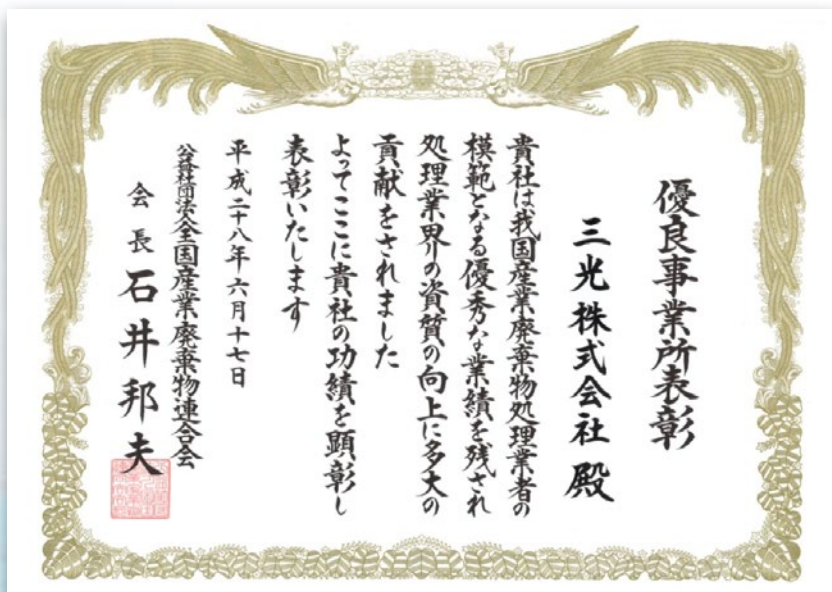 優良事業所表彰
三光株式会社 殿
貴社は我国産業廃棄物処理業者の
模範となる優秀な業績を残され
処理業界の資質の向上に多大の
貢献をされました
よってここに貴社の功績を顕彰し
表彰いたします
平成二十八年六月十七日
公益社団法人全国産業廃棄物連合会
会長 石井邦夫